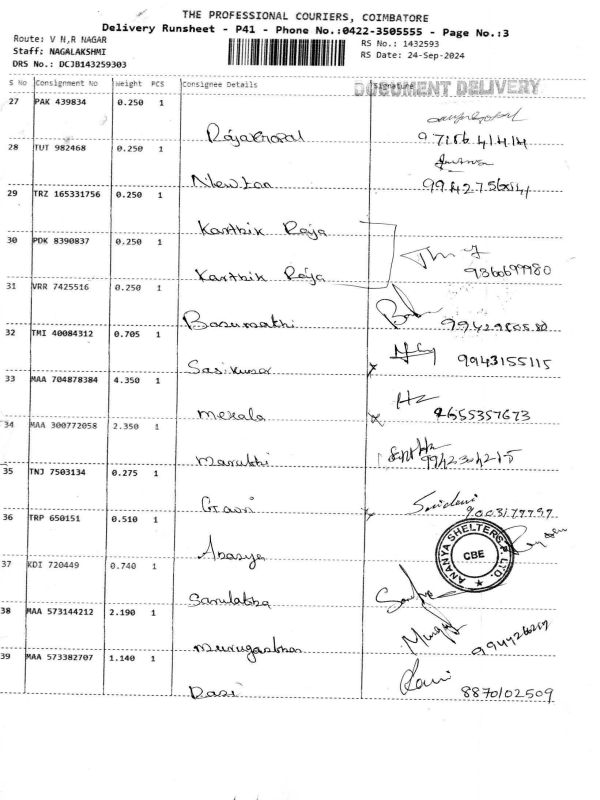 THE PROFESSIONAL COURIERS, COIMBATORE
Delivery Runsheet - P41 - Phone No.:0422-3505555 - Page No.:3
Route: V N,R NAGAR
Staff: NAGALAKSHMI
DRS No.: DCJB143259303
RS No.: 1432593
RS Date: 24-Sep-2024
S No Consignment No Weight PCS Consignee Details Signature
DOCUMENT DELIVERY
27 PAK 439834 0.250 1
Rajagopal
28 TUT 982468 0.250 1
Newton
29 TRZ 165331756 0.250 1
Karthik Raja
30 PDK 8390837 0.250 1
Karthik Raja 9360699980
31 VRR 7425516 0.250 1
32 TMI 40084312 0.705 1
Sasikumar 9943155115
33 MAA 704878384 4.350 1
Mekala 9655357673
34 MAA 300772058 2.350 1
Maruthi
35 TNJ 7503134 0.275 1
Gowri Sridevi
36 TRP 650151 0.510 1
ANANYA SHELTERS P. LTD.
CBE
37 KDI 720449 0.740 1
38 MAA 573144212 2.190 1
39 MAA 573382707 1.140 1
Rasi 8870102509